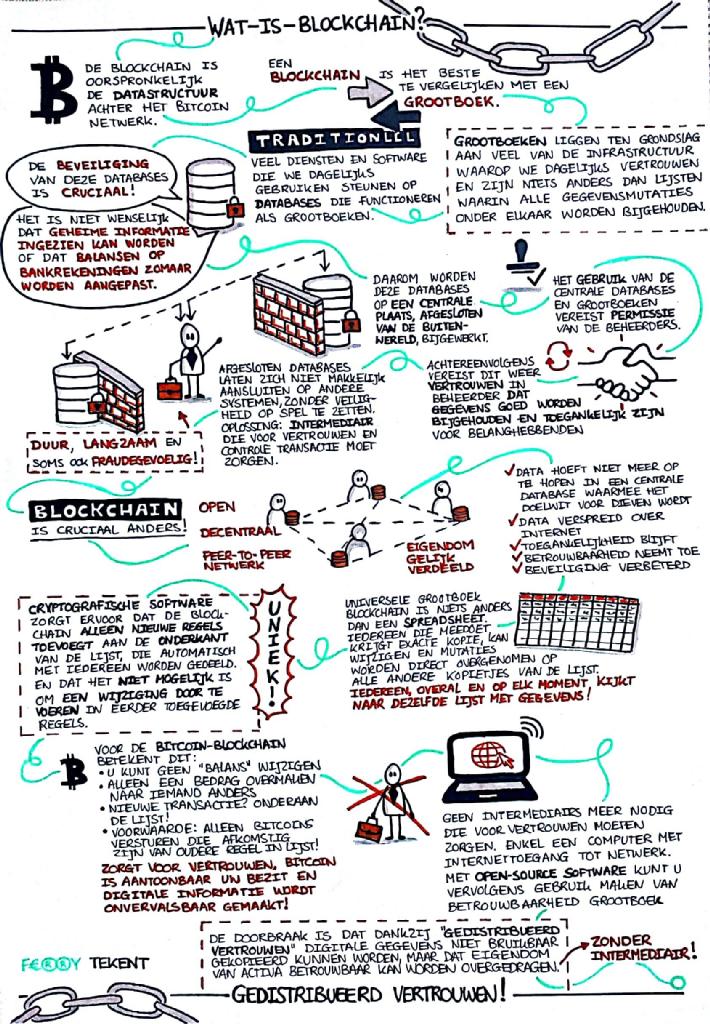 WAT-IS-BLOCKCHAIN?
DE BLOCKCHAIN IS
OORSPRONKELIJK
DE DATASTRUCTUUR
ACHTER HET BITCOIN
NETWERK.
EEN
BLOCKCHAIN
IS HET BESTE
TE VERGELIJKEN MET EEN
GROOTBOEK.
TRADITIONEEL
VEEL DIENSTEN EN SOFTWARE
DIE WE DAGELIJKS
GEBRUIKEN STEUNEN OP
DATABASES DIE FUNCTIONEREN
ALS GROOTBOEKEN.
GROOTBOEKEN LIGGEN TEN GRONDSLAG
AAN VEEL VAN DE INFRASTRUCTUUR
WAAROP WE DAGELIJKS VERTROUWEN
EN ZIJN NIETS ANDERS DAN LIJSTEN
WAARIN ALLE GEGEVENSMUTATIES
ONDER ELKAAR WORDEN BIJGEHOUDEN.
DE BEVEILIGING
VAN DEZE DATABASES
IS CRUCIAAL!
HET IS NIET WENSELIJK
DAT GEHEIME INFORMATIE
INGEZIEN KAN WORDEN
OF DAT BALANSEN OP
BANKREKENINGEN ZOMAAR
WORDEN AANGEPAST.
DAAROM WORDEN
DEZE DATABASES
OP EEN CENTRALE
PLAATS, AFGESLOTEN
VAN DE BUITEN-
WERELD, BIJGEWERKT.
HET GEBRUIK VAN DE
CENTRALE DATABASES
EN GROOTBOEKEN
VEREIST PERMISSIE
VAN DE BEHEERDERS.
AFGESLOTEN DATABASES
LATEN ZICH NIET MAKKELIJK
AANSLUITEN OP ANDERE
SYSTEMEN, ZONDER VEILIG-
HEID OP SPEL TE ZETTEN.
OPLOSSING: INTERMEDIAIR
DIE VOOR VERTROUWEN EN
CONTROLE TRANSACTIE MOET
ZORGEN.
ACHTEREENVOLGENS
VEREIST DIT WEER
VERTROUWEN IN
BEHEERDER DAT
GEGEVENS GOED WORDEN
BIJGEHOUDEN EN TOEGANKELIJK ZIJN
VOOR BELANGHEBBENDEN
DUUR, LANGZAAM EN
SOMS OOK FRAUDEGEVOELIG!
BLOCKCHAIN
IS CRUCIAAL ANDERS!
OPEN
DECENTRAAL
PEER-TO-PEER
NETWERK
EIGENDOM
GELIJK
VERDEELD
✓DATA HOEFT NIET MEER OP
TE HOPEN IN EEN CENTRALE
DATABASE WAARMEE HET
DOELWIT VOOR DIEVEN WORDT
✓DATA VERSPREID OVER
INTERNET
✓TOEGANKELIJKHEID BLIJFT
✓BETROUWBAARHEID NEEMT TOE
✓BEVEILIGING VERBETERD
CRYPTOGRAFISCHE SOFTWARE
ZORGT ERVOOR DAT DE BLOCK-
CHAIN ALLEEN NIEUWE REGELS
TOEVOEGT AAN DE ONDERKANT
VAN DE LIJST, DIE AUTOMATISCH
MET IEDEREEN WORDEN GEDEELD.
EN DAT HET NIET MOGELIJK IS
OM EEN WIJZIGING DOOR TE
VOEREN IN EERDER TOEGEVOEGDE
REGELS.
UNIEK!
UNIVERSELE GROOTBOEK
BLOCKCHAIN IS NIETS ANDERS
DAN EEN SPREADSHEET.
IEDEREEN DIE MEEDOET,
KRIJGT EXACTE KOPIE, KAN
WIJZIGEN EN MUTATIES
WORDEN DIRECT OVERGENOMEN OP
ALLE ANDERE KOPIETJES VAN DE LIJST.
IEDEREEN, OVERAL EN OP ELK MOMENT, KIJKT
NAAR DEZELFDE LIJST MET GEGEVENS!
VOOR DE BITCOIN-BLOCKCHAIN
BETEKENT DIT:
• U KUNT GEEN "BALANS" WIJZIGEN
• ALLEEN EEN BEDRAG OVERMAKEN
NAAR IEMAND ANDERS
• NIEUWE TRANSACTIE? ONDERAAN
DE LIJST!
• VOORWAARDE: ALLEEN BITCOINS
VERSTUREN DIE AFKOMSTIG
ZIJN VAN OUDERE REGEL IN LIJST!
ZORGT VOOR VERTROUWEN, BITCOIN
IS AANTOONBAAR UW BEZIT EN
DIGITALE INFORMATIE WORDT
ONVERVALSBAAR GEMAAKT!
GEEN INTERMEDIAIRS MEER NODIG
DIE VOOR VERTROUWEN MOETEN
ZORGEN. ENKEL EEN COMPUTER MET
INTERNETTOEGANG TOT NETWERK.
MET OPEN-SOURCE SOFTWARE KUNT U
VERVOLGENS GEBRUIK MAKEN VAN
BETROUWBAARHEID GROOTBOEK
DE DOORBRAAK IS DAT DANKZIJ "GEDISTRIBUEERD
VERTROUWEN" DIGITALE GEGEVENS NIET BRUIKBAAR
GEKOPIEERD KUNNEN WORDEN, MAAR DAT EIGENDOM
VAN ACTIVA BETROUWBAAR KAN WORDEN OVERGEDRAGEN.
ZONDER
INTERMEDIAIR!
F€®®Y TEKENT
GEDISTRIBUEERD VERTROUWEN!